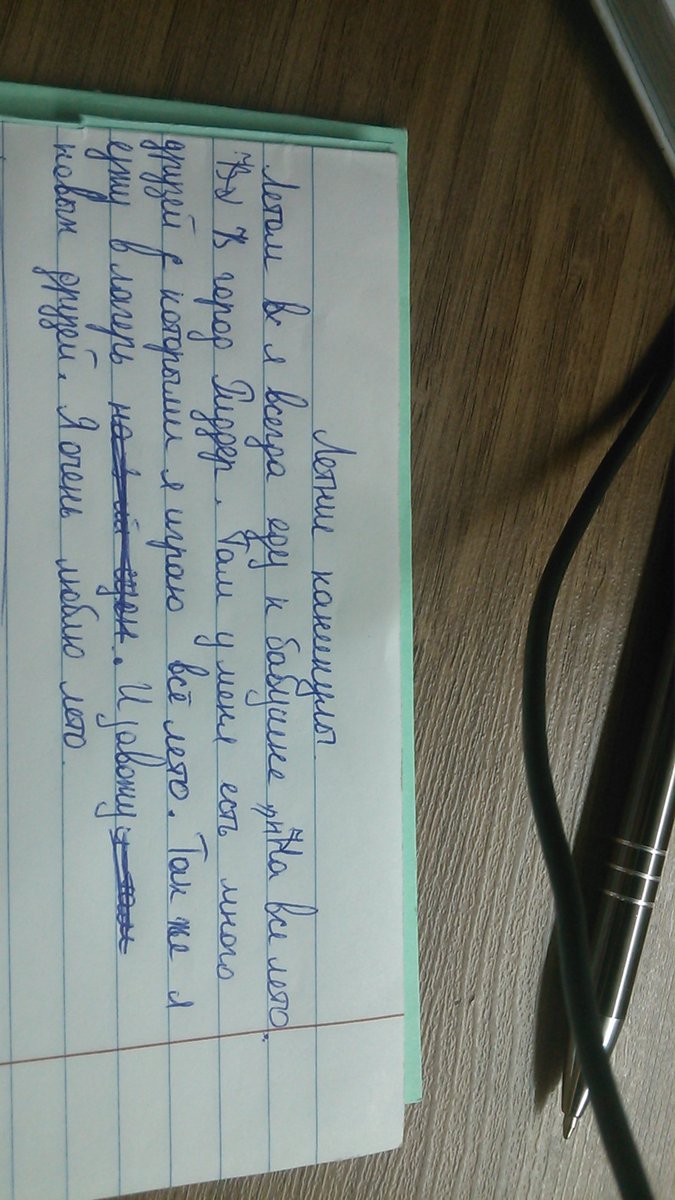 Летние каникулы.
Летом я всегда еду к бабушке На все лето.
В город Риддер. Там у меня есть много
друзей с которыми я играю всё лето. Так же я
езжу в лагерь. И завожу
новых друзей. Я очень люблю лето.